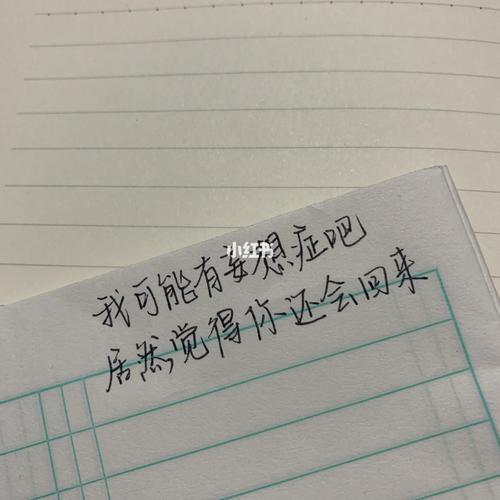 小红书
我可能有妄想症吧
居然觉得你还会回来